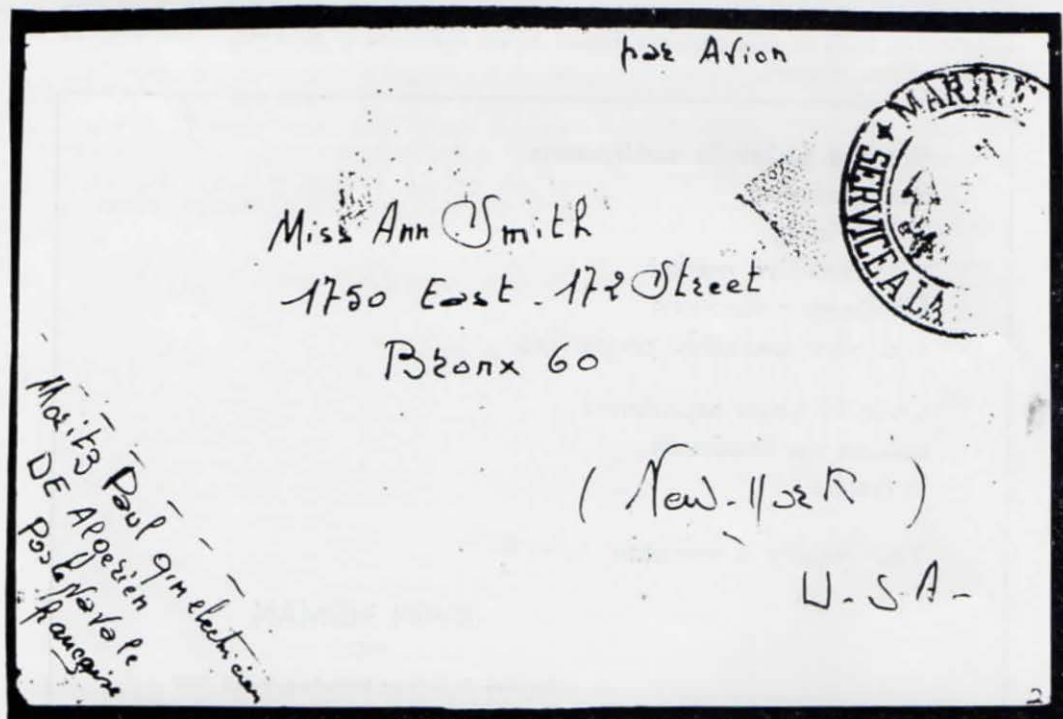 par Avion
MARINE
★ SERVICE A LA
Miss Ann Smith
1750 East 172 Street
Bronx 60
(New-York)
U-S-A-
Moritz Paul qm electricien
DE Algérien
Poste Navale
française
2